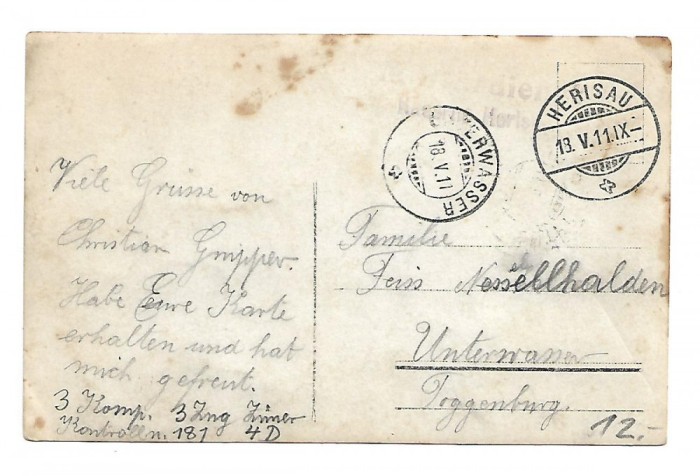 Viele Grüsse von
Christian Gmipper.
Habe Eure Karte
erhalten und hat
mich gefreut.
3 Komp. 3 Zug
Kontrolln. 181 4D
HERISAU
18. V. 11. IX–
UNTERWASSER
18. V. 11
Familie
Feiss Nessellhalden
Unterwasser
Toggenburg.
12.-